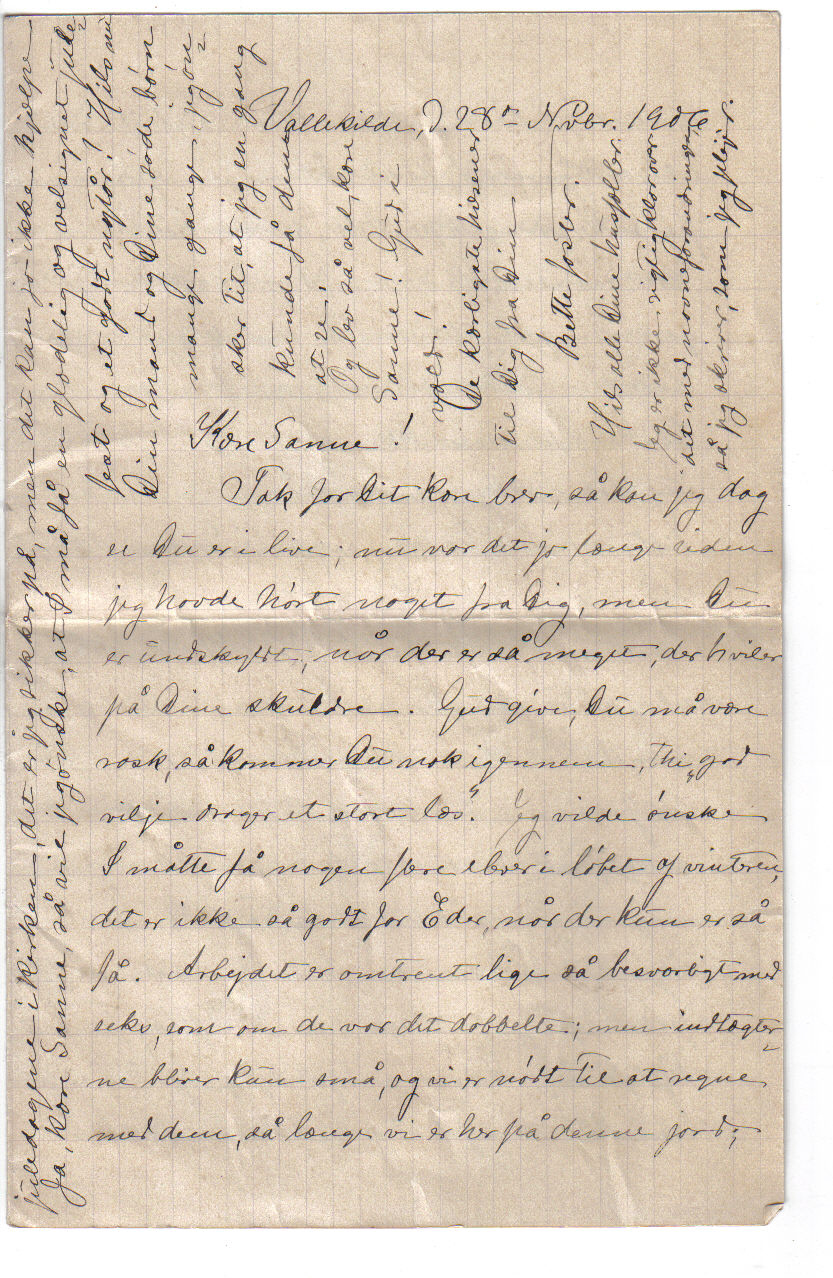 Vallekilde, d. 28de Novbr. 1906.
Kære Sanne!
Tak for Dit kære brev, så kan jeg dog
se Du er i live; nu var det jo længe siden
jeg havde hørt noget fra Dig, men Du
er undskyldt, når der er så meget, der hviler
på Dine skuldre. Gud give, Du må være
rask, så kommer Du nok igennem, thi "god
vilje drager et stort læs." Jeg vilde ønske
I måtte få nogen flere elever i løbet af vinteren,
det er ikke så godt for Eder, når der kun er så
få. Arbejdet er omtrent lige så besværligt med
seks, som om de var det dobbelte; men indtægter-
ne bliver kun små, og vi er nødt til at regne
med dem, så længe vi er her på denne jord;
juledagene i kirken, det er jeg sikker på, men det kan jo ikke hjælpe
Ja, kære Sanne, så vil jeg ønske, at I må få en glædelig og velsignet jule-
fest og et godt nytår! Hils nu
Din mand og Dine søde børn
mange gange; jeg øn-
sker tit, at jeg en gang
kunde få dem
at se!
Og lev så vel, kære
Sanne! Gud i
vold!
De kærligste hilsener
til Dig fra Din
Bette foster.
Hils alle Dine husfæller.
Jeg er ikke rigtig klar over
det med navneforandringen
så jeg skriver, som jeg plejer.